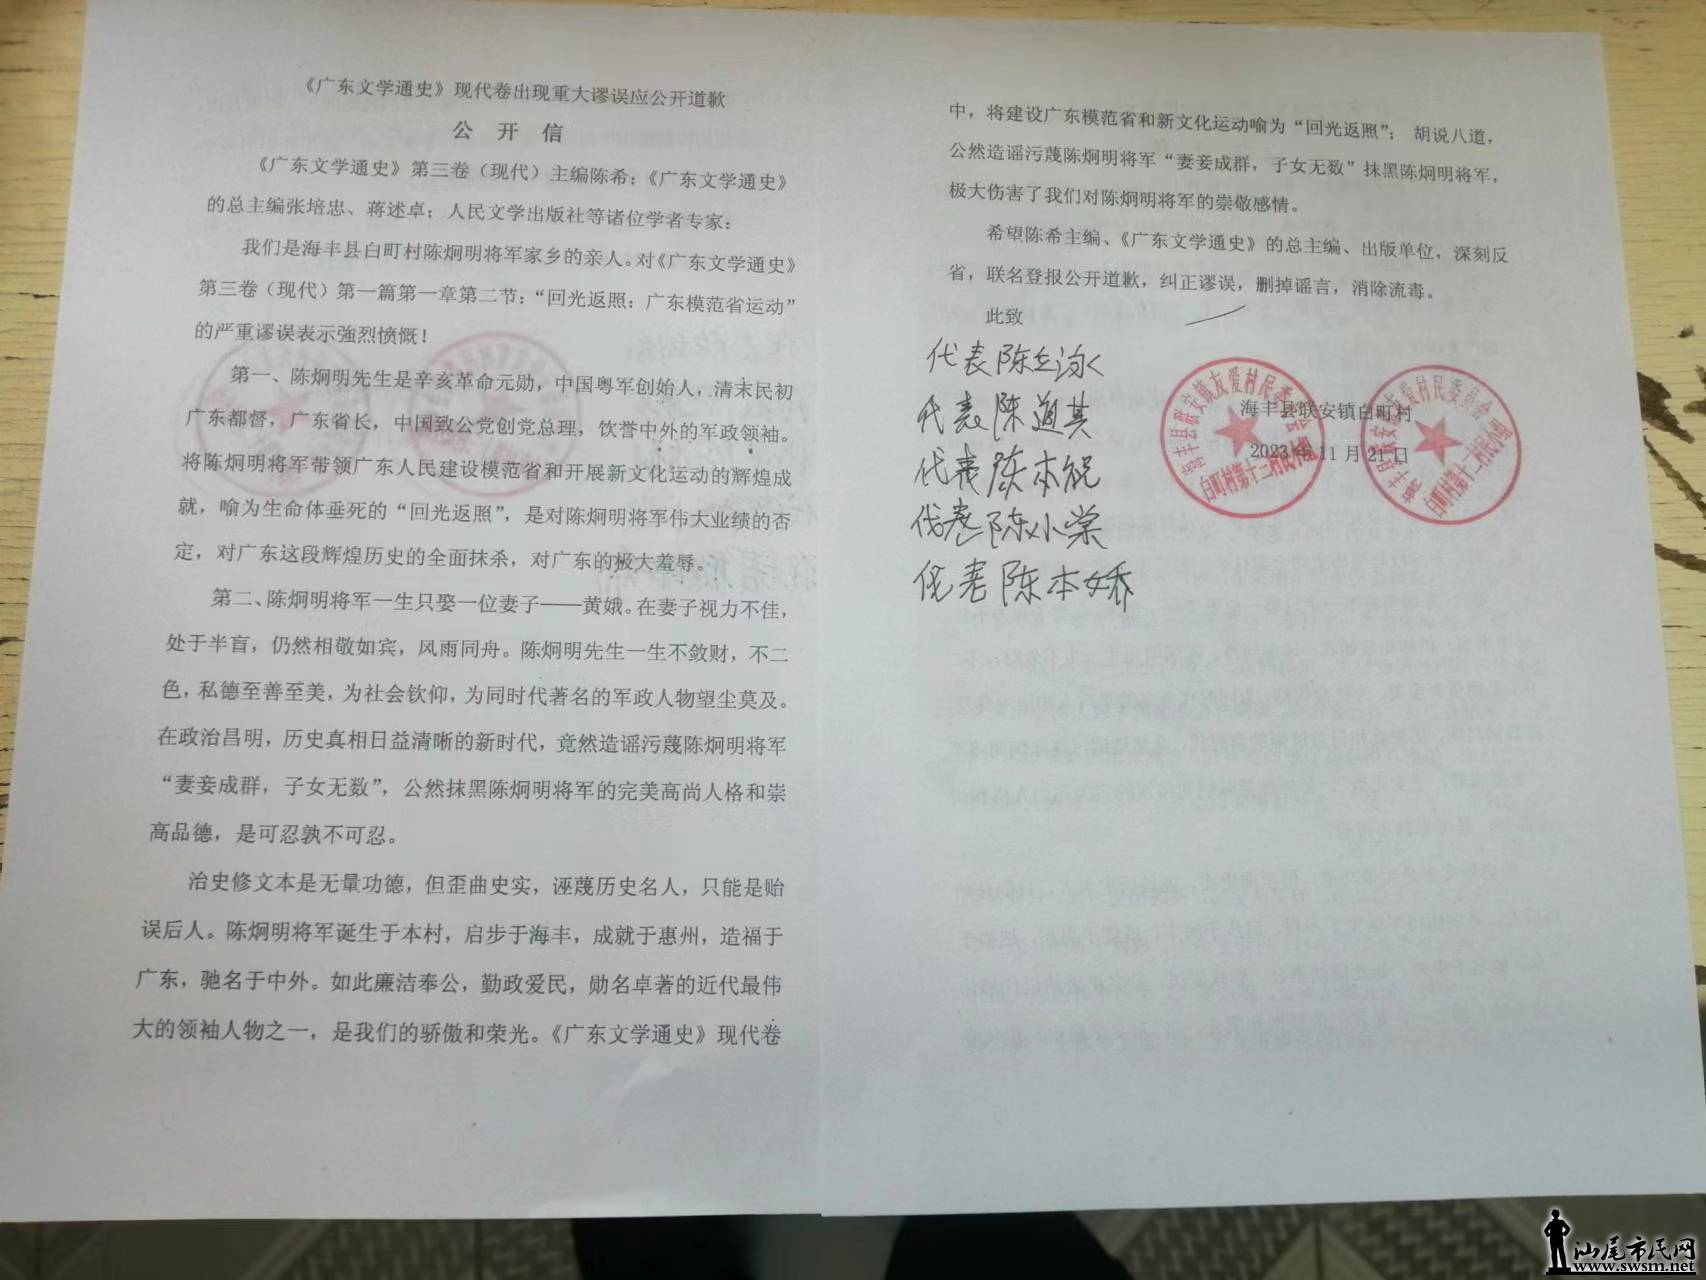 《广东文学通史》现代卷出现重大谬误应公开道歉
公 开 信
《广东文学通史》第三卷（现代）主编陈希；《广东文学通史》
的总主编张培忠、蒋述卓；人民文学出版社等诸位学者专家：
我们是海丰县白町村陈炯明将军家乡的亲人。对《广东文学通史》
第三卷（现代）第一篇第一章第二节：“回光返照：广东模范省运动”
的严重谬误表示强烈愤慨！
第一、陈炯明先生是辛亥革命元勋，中国粤军创始人，清末民初
广东都督，广东省长，中国致公党创党总理，饮誉中外的军政领袖。
将陈炯明将军带领广东人民建设模范省和开展新文化运动的辉煌成
就，喻为生命体垂死的“回光返照”，是对陈炯明将军伟大业绩的否
定，对广东这段辉煌历史的全面抹杀，对广东的极大羞辱。
第二、陈炯明将军一生只娶一位妻子——黄娥。在妻子视力不佳，
处于半盲，仍然相敬如宾，风雨同舟。陈炯明先生一生不敛财，不二
色，私德至善至美，为社会钦仰，为同时代著名的军政人物望尘莫及。
在政治昌明，历史真相日益清晰的新时代，竟然造谣污蔑陈炯明将军
“妻妾成群，子女无数”，公然抹黑陈炯明将军的完美高尚人格和崇
高品德，是可忍孰不可忍。
治史修文本是无量功德，但歪曲史实，诬蔑历史名人，只能是贻
误后人。陈炯明将军诞生于本村，启步于海丰，成就于惠州，造福于
广东，驰名于中外。如此廉洁奉公，勤政爱民，勋名卓著的近代最伟
大的领袖人物之一，是我们的骄傲和荣光。《广东文学通史》现代卷
中，将建设广东模范省和新文化运动喻为“回光返照”；胡说八道，
公然造谣污蔑陈炯明将军“妻妾成群，子女无数”抹黑陈炯明将军，
极大伤害了我们对陈炯明将军的崇敬感情。
希望陈希主编、《广东文学通史》的总主编、出版单位，深刻反
省，联名登报公开道歉，纠正谬误，删掉谣言，消除流毒。
此致
代表陈
代表陈道其
代表陈本祝
代表陈小棠
代表陈本娇
海丰县联安镇友爱村民委员会
白町村第十三村民小组
海丰县联安镇友爱村民委员会
白町村第十二村民小组
海丰县联安镇白町村
2023年11月21日
汕尾市民网
www.swsm.net